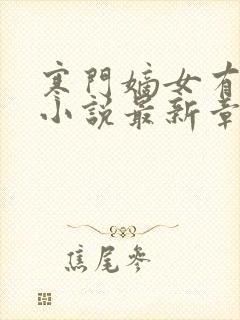 寒門嫡女有
小說最新章
焦尾參